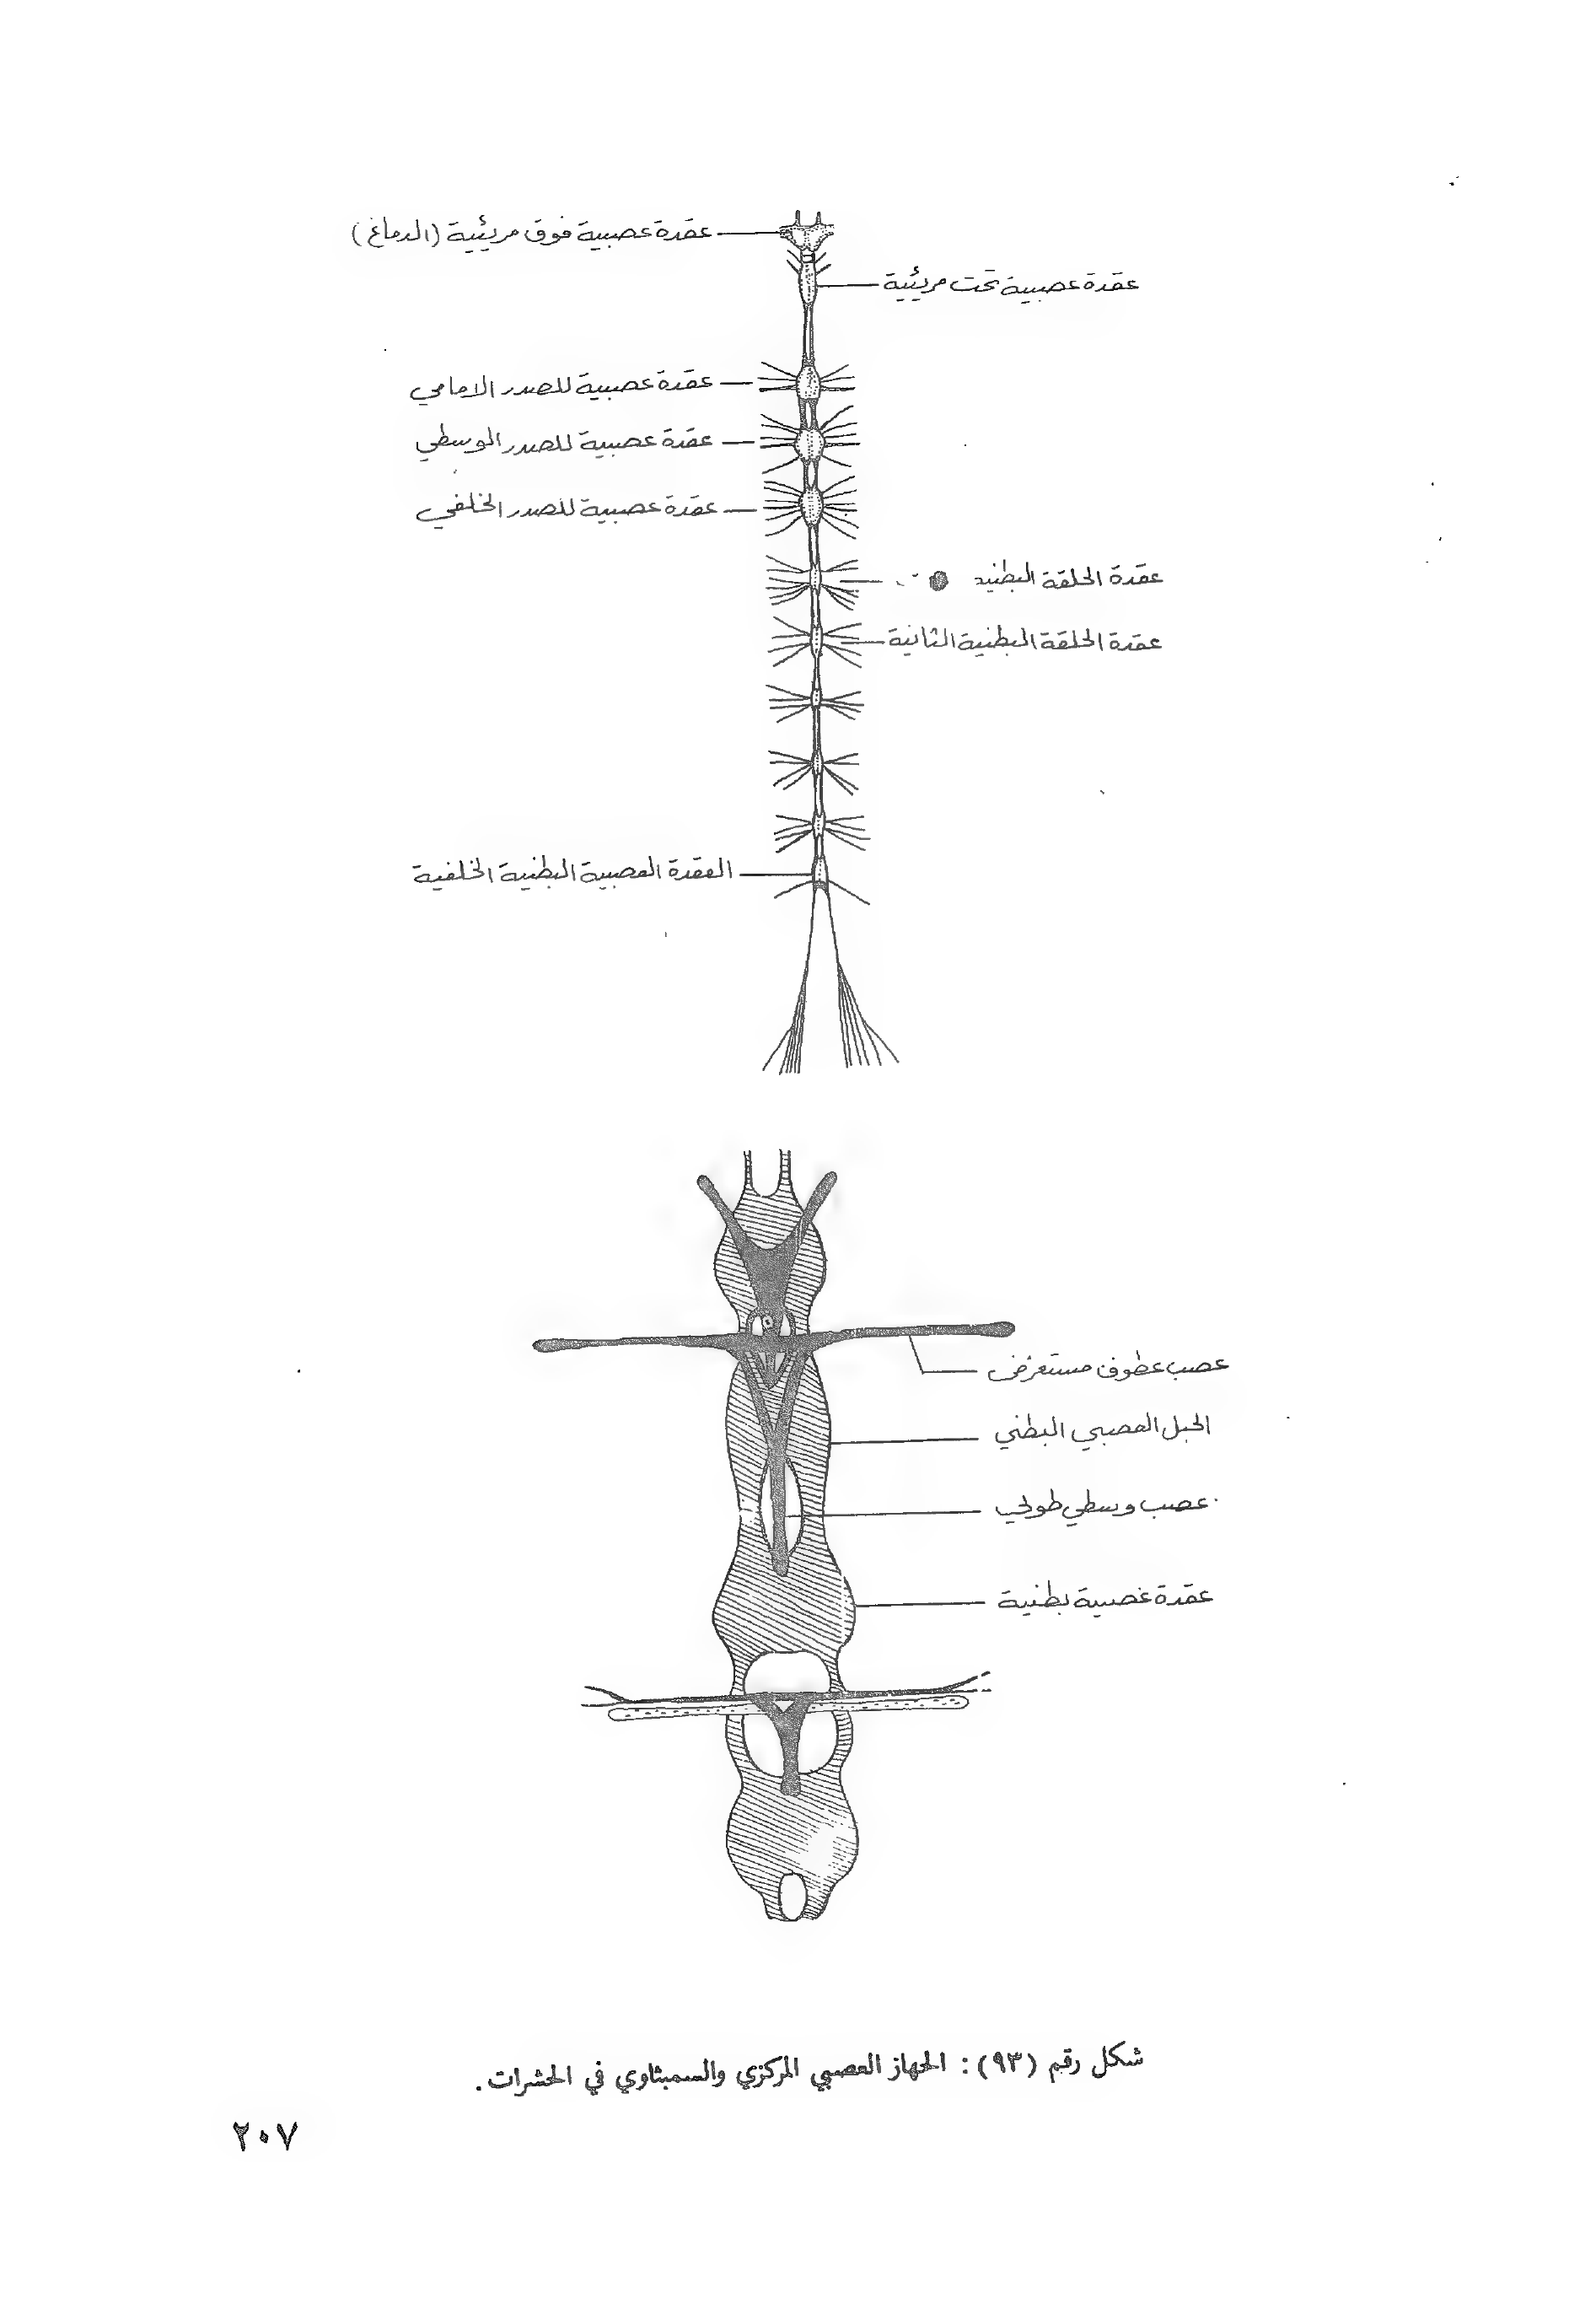 عقدة عصبية فوق مريئية (الدماغ)
عقدة عصبية تحت مريئية
عقدة عصبية للصدر الامامي
عقدة عصبية للصدر الوسطي
عقدة عصبية للصدر الخلفي
عقدة الحلقة البطنية
عقدة الحلقة البطنية الثانية
العقدة العصبية البطنية الخلفية
عصب عطوف مستعرض
الحبل العصبي البطني
عصب وسطي طولي
عقدة عصبية بطنية
شكل رقم (٩٣) : الجهاز العصبي المركزي والسمبثاوي في الحشرات .
٢٠٧